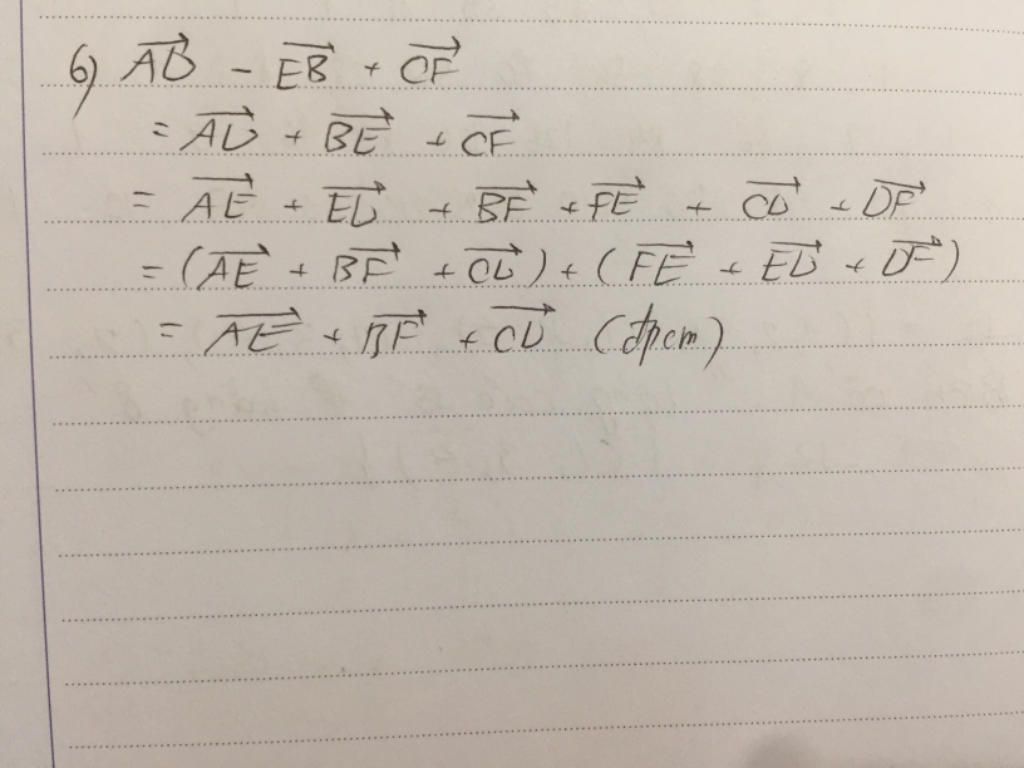 6) $\overrightarrow{AD} - \overrightarrow{EB} + \overrightarrow{CF}$
$= \overrightarrow{AD} + \overrightarrow{BE} + \overrightarrow{CF}$
$= \overrightarrow{AE} + \overrightarrow{ED} + \overrightarrow{BF} + \overrightarrow{FE} + \overrightarrow{CD} + \overrightarrow{DF}$
$= (\overrightarrow{AE} + \overrightarrow{BF} + \overrightarrow{CD}) + (\overrightarrow{FE} + \overrightarrow{ED} + \overrightarrow{DF})$
$= \overrightarrow{AE} + \overrightarrow{BF} + \overrightarrow{CD}$ (đpcm)